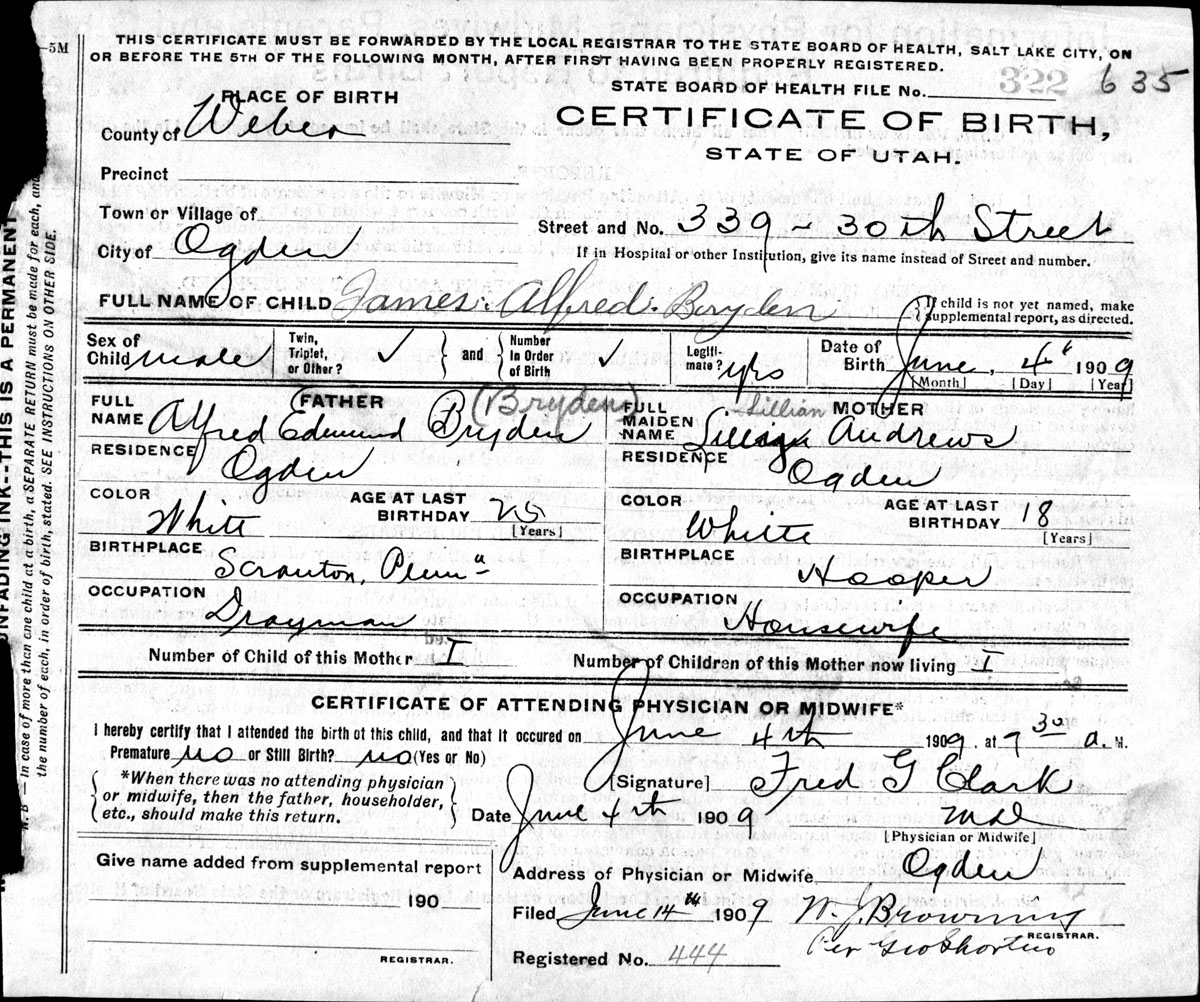 —5M
THIS CERTIFICATE MUST BE FORWARDED BY THE LOCAL REGISTRAR TO THE STATE BOARD OF HEALTH, SALT LAKE CITY, ON
OR BEFORE THE 5TH OF THE FOLLOWING MONTH, AFTER FIRST HAVING BEEN PROPERLY REGISTERED.
STATE BOARD OF HEALTH FILE No. 322 635
PLACE OF BIRTH
CERTIFICATE OF BIRTH,
STATE OF UTAH.
County of Weber
Precinct
Town or Village of
Street and No. 339 - 30th Street
City of Ogden
If in Hospital or other Institution, give its name instead of Street and number.
FULL NAME OF CHILD James Alfred Bryden
If child is not yet named, make supplemental report, as directed.
Sex of Child male
Twin, Triplet, or Other? ✓
and Number in Order of Birth ✓
Legitimate? yes
Date of Birth June, 4th 1909
[Month] [Day] [Year]
FATHER
FULL NAME Alfred Edmund Bryden (Bryden)
MOTHER
FULL MAIDEN NAME Lillian Andrews Lillian
RESIDENCE Ogden
RESIDENCE Ogden
COLOR White
AGE AT LAST BIRTHDAY 25 [Years]
COLOR White
AGE AT LAST BIRTHDAY 18 [Years]
BIRTHPLACE Scranton, Penna
BIRTHPLACE Hooper
OCCUPATION Drayman
OCCUPATION Housewife
Number of Child of this Mother I
Number of Children of this Mother now living I
CERTIFICATE OF ATTENDING PHYSICIAN OR MIDWIFE*
I hereby certify that I attended the birth of this child, and that it occured on June 4th 1909, at 7 30 a. M.
Premature no or Still Birth? no (Yes or No)
*When there was no attending physician
or midwife, then the father, householder,
etc., should make this return.
[Signature] Fred G Clark
Date June 4th 1909 M.D.
[Physician or Midwife]
Give name added from supplemental report
190
REGISTRAR.
Address of Physician or Midwife Ogden
Filed June 14th 1909 W. J. Browning
REGISTRAR.
Per Geo
Registered No. 444
UNFADING INK--THIS IS A PERMANENT
N. B — In case of more than one child at a birth, a SEPARATE RETURN must be made for each, and
the number of each, in order of birth, stated. SEE INSTRUCTIONS ON OTHER SIDE.